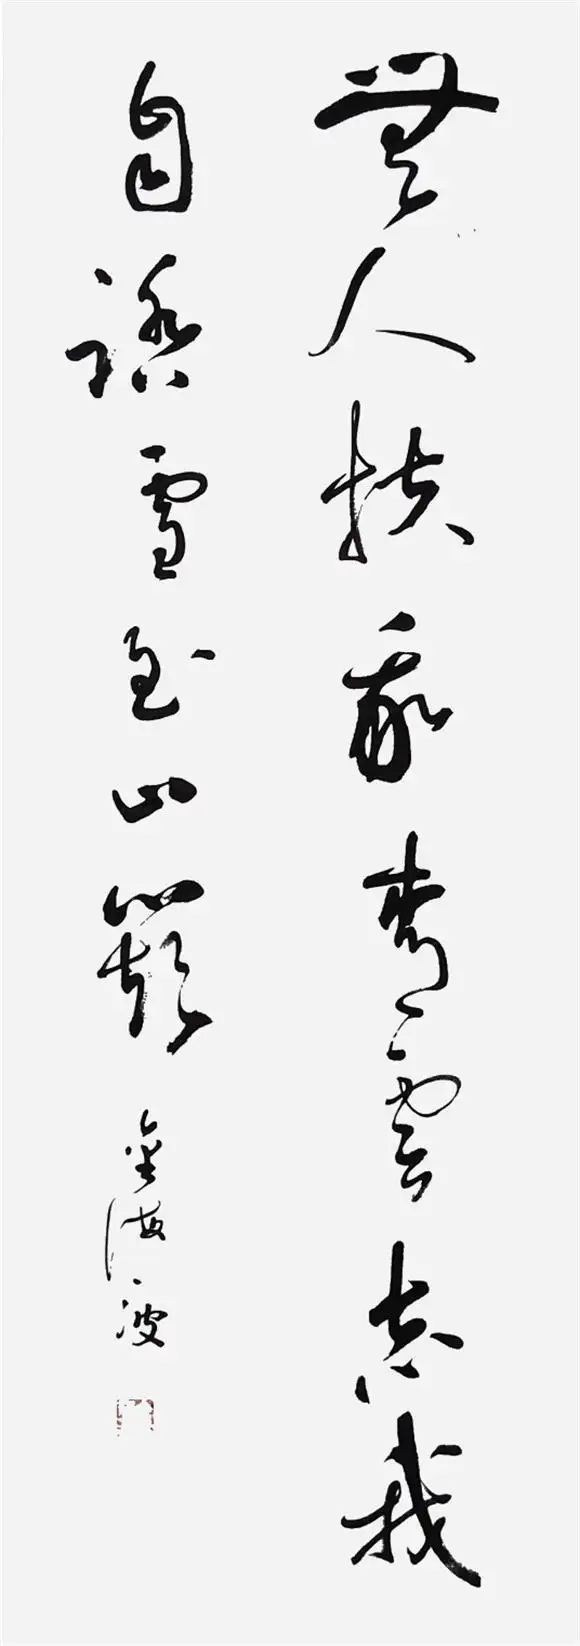 無人扶我青雲志我
自踏雪至山巔
金海波